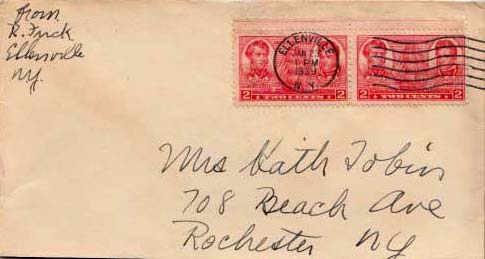 from
R. Frick
Ellenville
N.Y.
ELLENVILLE
JAN 23
1 PM
1939
N.Y.
2 TWO CENTS 2
2 TWO CENTS 2
Mrs Kath Tobin
708 Beach Ave
Rochester NY